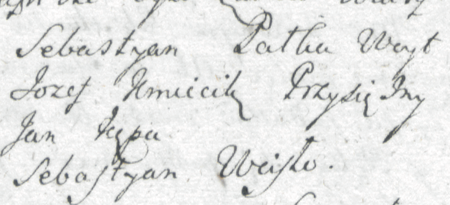 Sebastyan Patka Woyt
Jozef Kmiecik Przysiężny
Jan Kępa
Sebastyan Wcisło.